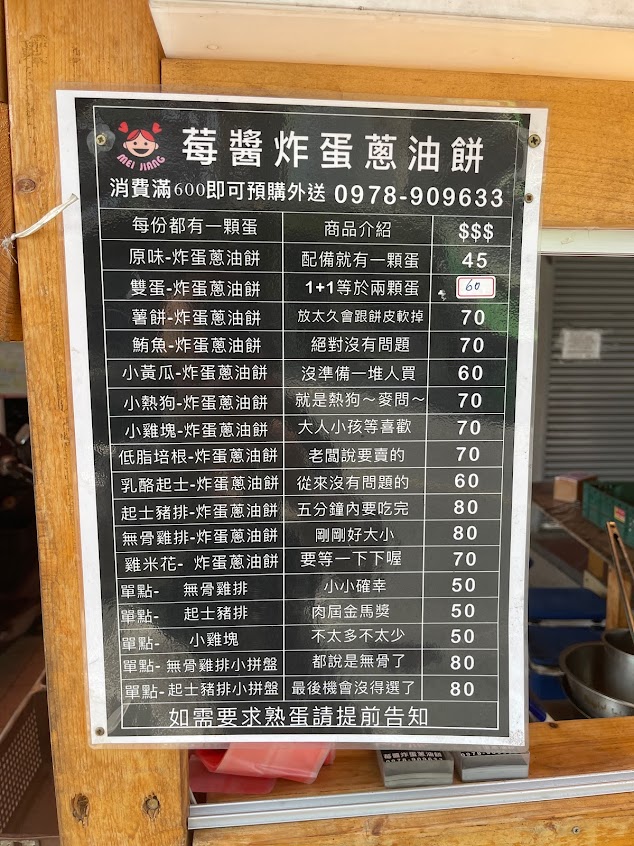 MEI JIANG
莓醬炸蛋蔥油餅
消費滿600即可預購外送 0978-909633
每份都有一顆蛋 商品介紹 $$$
原味-炸蛋蔥油餅 配備就有一顆蛋 45
雙蛋-炸蛋蔥油餅 1+1等於兩顆蛋 60
薯餅-炸蛋蔥油餅 放太久會跟餅皮軟掉 70
鮪魚-炸蛋蔥油餅 絕對沒有問題 70
小黃瓜-炸蛋蔥油餅 沒準備一堆人買 60
小熱狗-炸蛋蔥油餅 就是熱狗～麥問～ 70
小雞塊-炸蛋蔥油餅 大人小孩等喜歡 70
低脂培根-炸蛋蔥油餅 老闆說要賣的 70
乳酪起士-炸蛋蔥油餅 從來沒有問題的 60
起士豬排-炸蛋蔥油餅 五分鐘內要吃完 80
無骨雞排-炸蛋蔥油餅 剛剛好大小 80
雞米花- 炸蛋蔥油餅 要等一下下喔 70
單點- 無骨雞排 小小確幸 50
單點- 起士豬排 肉屆金馬獎 50
單點- 小雞塊 不太多不太少 50
單點- 無骨雞排小拼盤 都說是無骨了 80
單點- 起士豬排小拼盤 最後機會沒得選了 80
如需要求熟蛋請提前告知
莓醬炸蛋蔥油餅
0978-909633